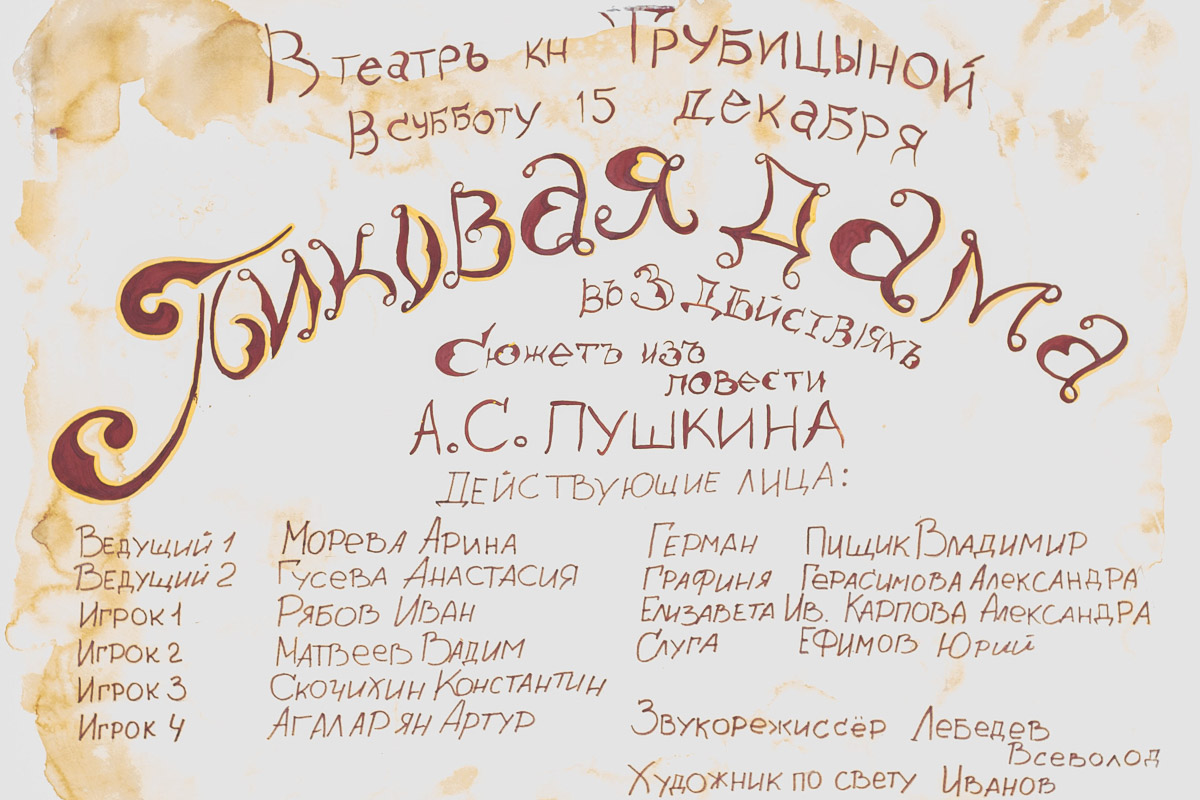 В театръ кн Трубицыной
В субботу 15 декабря
Пиковая дама
въ 3 дѣйствіяхъ
Сюжетъ изъ
повести
А.С. Пушкина
Действующие лица:
Ведущий 1 Морева Арина
Ведущий 2 Гусева Анастасия
Игрок 1 Рябов Иван
Игрок 2 Матвеев Вадим
Игрок 3 Скочихин Константин
Игрок 4 Агаларян Артур
Герман Пищик Владимир
Графиня Герасимова Александра
Елизавета Ив. Карпова Александра
Слуга Ефимов Юрий
Звукорежиссёр Лебедев
Всеволод
Художник по свету Иванов